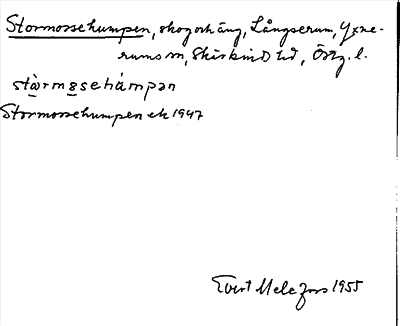 Stormossehumpen, skog och äng, Långserum, Yxne-
rums sn, Skärkinds hd, Östg. l.
stàrmosehámpən
Stormossehumpen ek 1947
Evert Melefors 1955